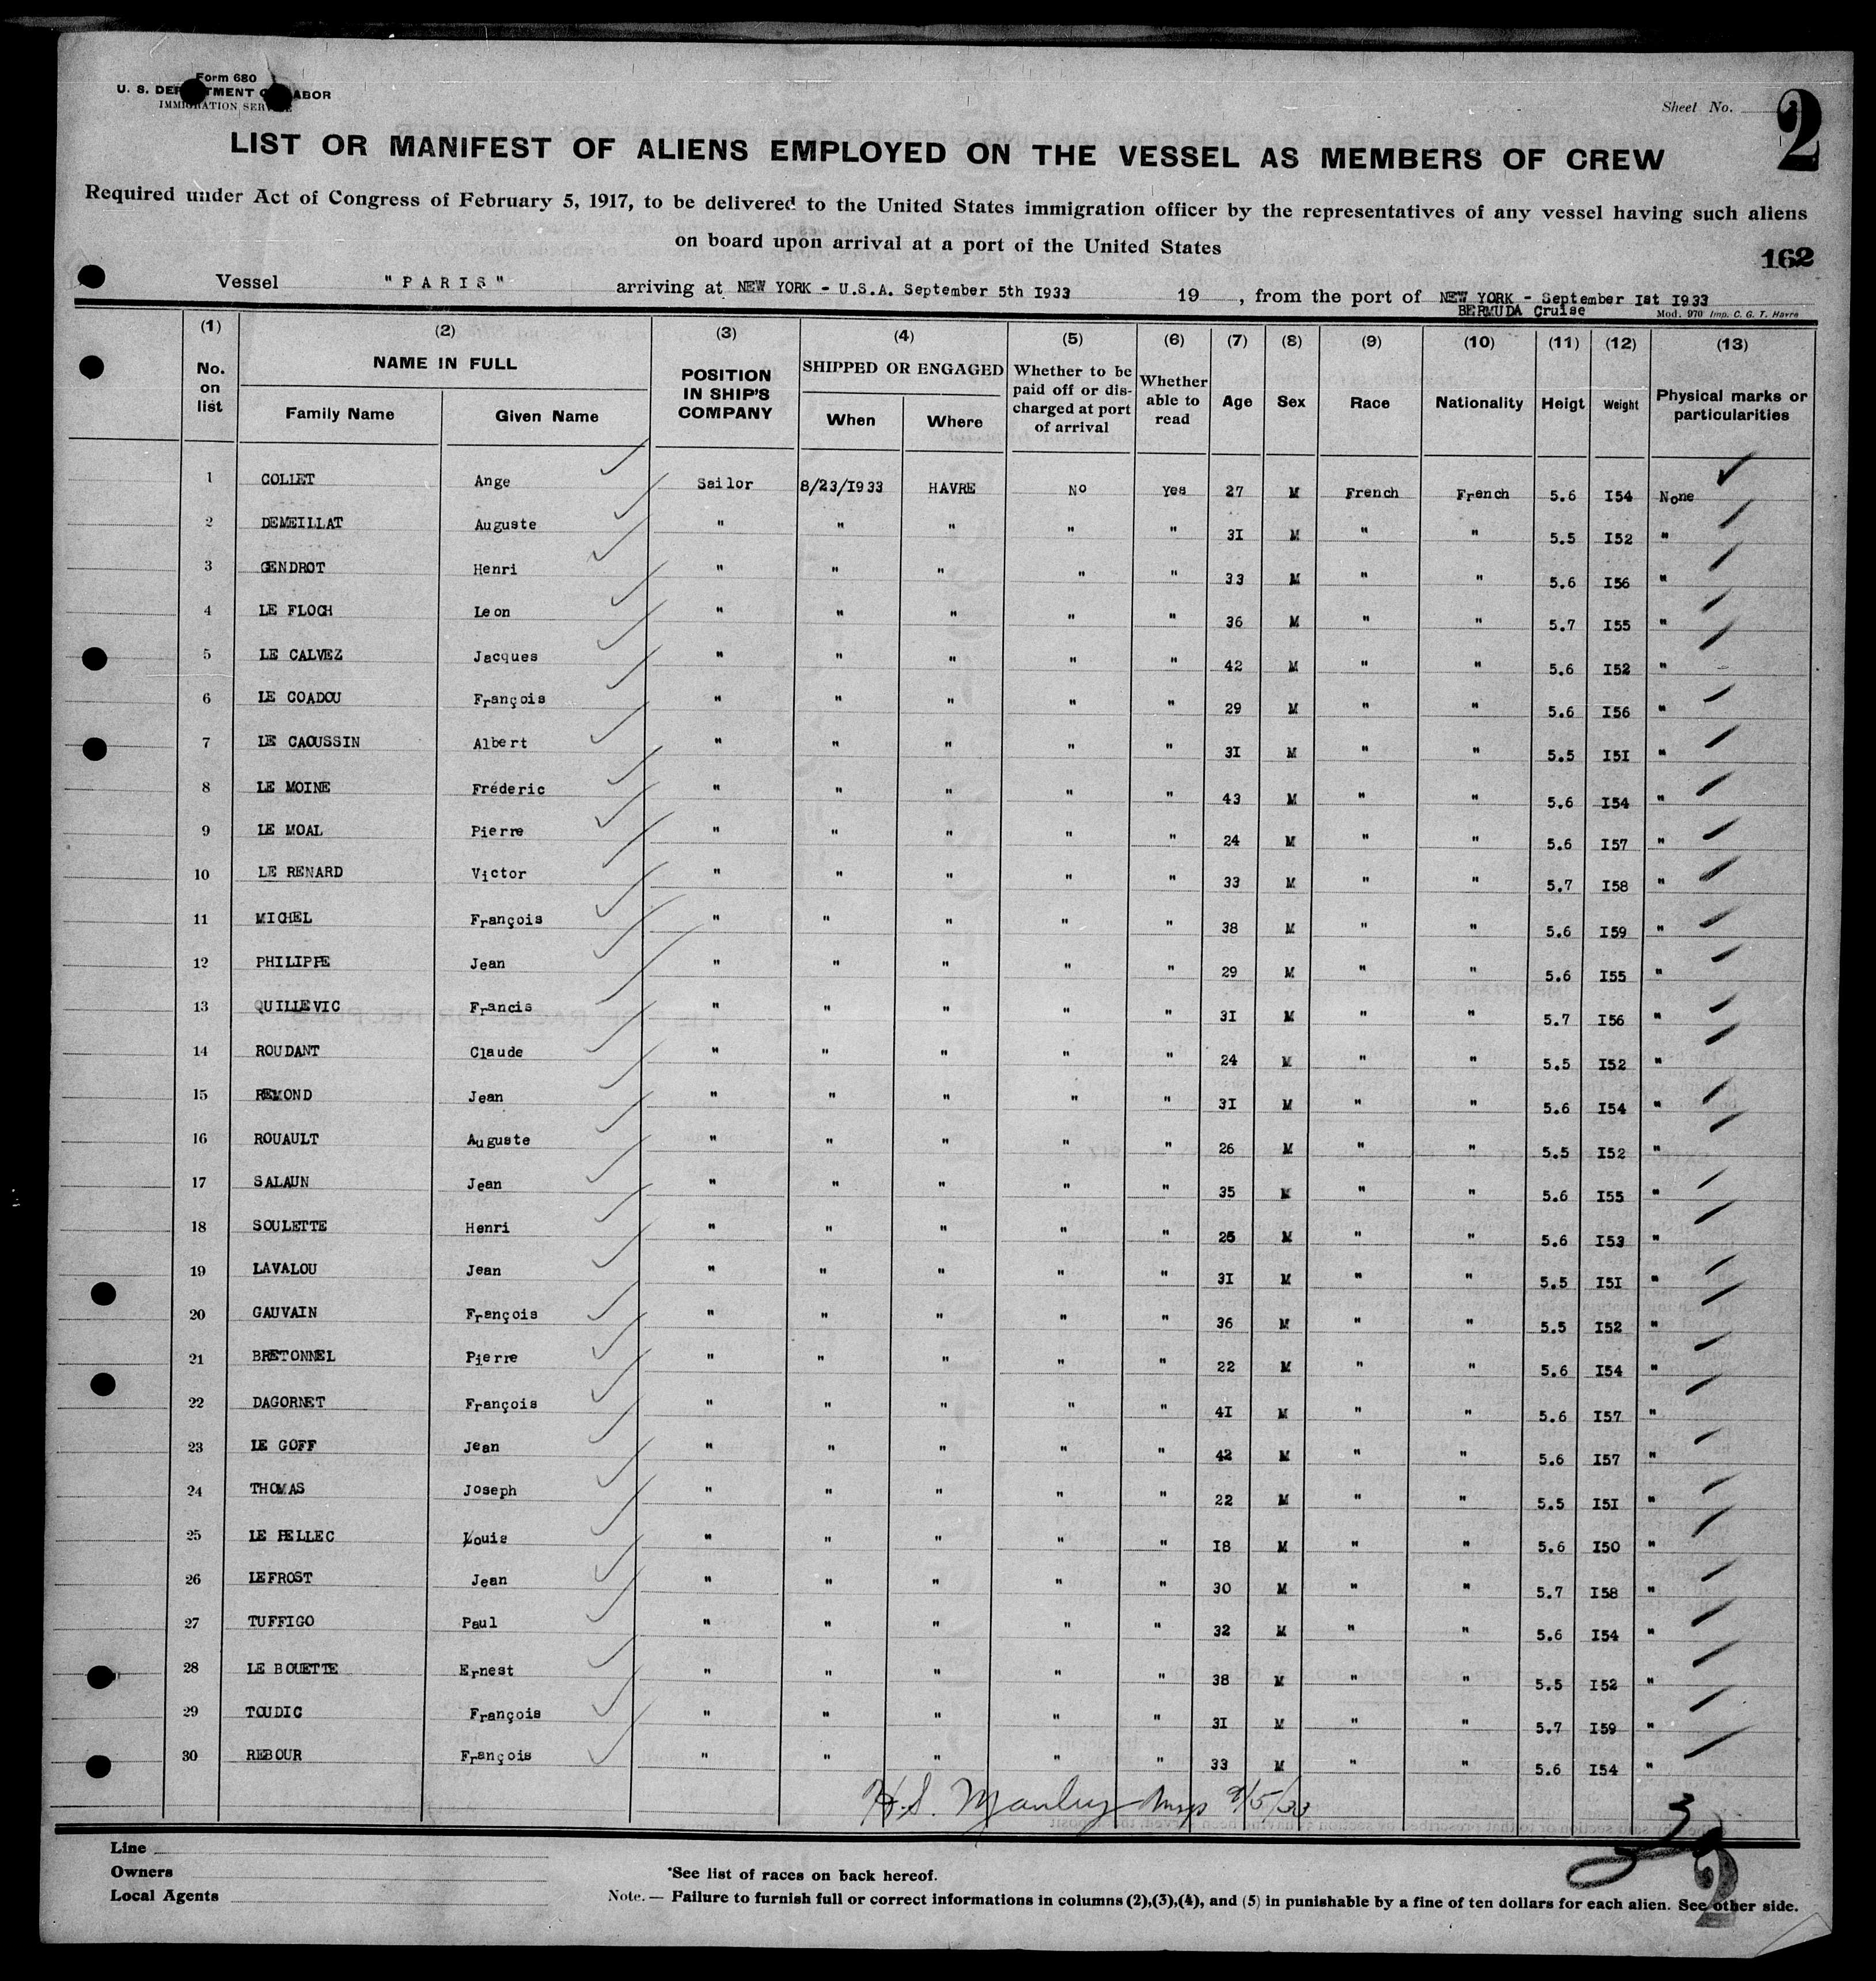 Form 680
U. S. DEPARTMENT OF LABOR
IMMIGRATION SERVICE
Sheet No. 2
LIST OR MANIFEST OF ALIENS EMPLOYED ON THE VESSEL AS MEMBERS OF CREW
Required under Act of Congress of February 5, 1917, to be delivered to the United States immigration officer by the representatives of any vessel having such aliens
on board upon arrival at a port of the United States
162
Vessel "PARIS" arriving at NEW YORK - U.S.A. September 5th I933 19 , from the port of NEW YORK - September Ist I933
BERMUDA Cruise
Mod. 970 Imp. C. G. T. Havre
(1) (2) (3) (4) (5) (6) (7) (8) (9) (10) (11) (12) (13)
No. on list NAME IN FULL Family Name Given Name POSITION IN SHIP'S COMPANY SHIPPED OR ENGAGED When Where Whether to be paid off or discharged at port of arrival Whether able to read Age Sex Race Nationality Heigt Weight Physical marks or particularities
1 COLLET Ange Sailor 8/23/I933 HAVRE No Yes 27 M French French 5.6 I54 None
2 DEMEILLAT Auguste " " " " " 3I M " " 5.5 I52 "
3 GENDROT Henri " " " " " 33 M " " 5.6 I56 "
4 LE FLOCH Leon " " " " " 36 M " " 5.7 I55 "
5 LE CALVEZ Jacques " " " " " 42 M " " 5.6 I52 "
6 LE COADOU François " " " " " 29 M " " 5.6 I56 "
7 LE CAOUSSIN Albert " " " " " 3I M " " 5.5 I5I "
8 LE MOINE Fréderic " " " " " 43 M " " 5.6 I54 "
9 LE MOAL Pierre " " " " " 24 M " " 5.6 I57 "
10 LE RENARD Victor " " " " " 33 M " " 5.7 I58 "
11 MICHEL François " " " " " 38 M " " 5.6 I59 "
12 PHILIPPE Jean " " " " " 29 M " " 5.6 I55 "
13 QUILLEVIC Francis " " " " " 3I M " " 5.7 I56 "
14 ROUDANT Claude " " " " " 24 M " " 5.5 I52 "
15 REMOND Jean " " " " " 3I M " " 5.6 I54 "
16 ROUAULT Auguste " " " " " 26 M " " 5.5 I52 "
17 SALAUN Jean " " " " " 35 M " " 5.6 I55 "
18 SOULETTE Henri " " " " " 25 M " " 5.6 I53 "
19 LAVALOU Jean " " " " " 3I M " " 5.5 I5I "
20 GAUVAIN François " " " " " 36 M " " 5.5 I52 "
21 BRETONNEL Pierre " " " " " 22 M " " 5.6 I54 "
22 DAGORNET François " " " " " 4I M " " 5.6 I57 "
23 LE GOFF Jean " " " " " 42 M " " 5.6 I57 "
24 THOMAS Joseph " " " " " 22 M " " 5.5 I5I "
25 LE PELLEC Louis " " " " " I8 M " " 5.6 I50 "
26 LEFROST Jean " " " " " 30 M " " 5.7 I58 "
27 TUFFIGO Paul " " " " " 32 M " " 5.6 I54 "
28 LE BOUETTE Ernest " " " " " 38 M " " 5.5 I52 "
29 TOUDIC François " " " " " 3I M " " 5.7 I59 "
30 REBOUR François " " " " " 33 M " " 5.6 I54 "
H.S. Manley 9/5/33
Line
Owners
Local Agents
*See list of races on back hereof.
Note. — Failure to furnish full or correct informations in columns (2),(3),(4), and (5) in punishable by a fine of ten dollars for each alien. See other side.
2